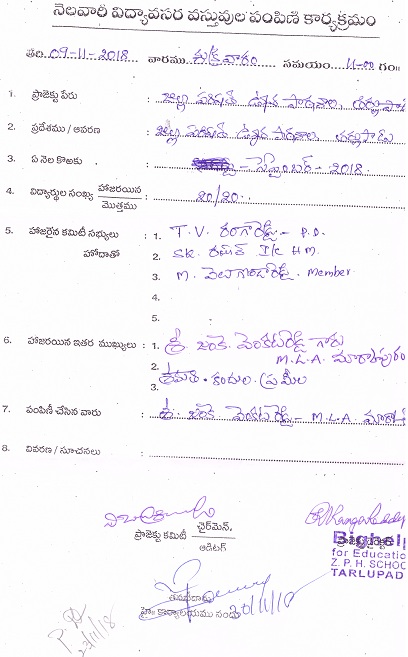 నెలవారీ విద్యావసర వస్తువుల పంపిణి కార్యక్రమం
తేది. 09-11-2018 వారము శుక్రవారం సమయం 11-00 గం॥
1. ప్రాజెక్టు పేరు : జిల్లా పరిషత్ ఉన్నత పాఠశాల,
2. ప్రదేశము / ఆవరణ : జిల్లా పరిషత్ ఉన్నత పాఠశాల, తర్లుపాడు
3. ఏ నెల కొఱకు : సెప్టెంబర్ - 2018
4. విద్యార్థుల సంఖ్య హాజరయిన / మొత్తము : 20/20
5. హాజరైన కమిటీ సభ్యులు : 1. T. V. రంగారెడ్డి - P.D.
హోదాతో 2. SK. I/c H.M.
3. M. వెలుగొండారెడ్డి. Member
4.
5.
6. హాజరయిన ఇతర ముఖ్యులు : 1. శ్రీ జంకె వెంకటరెడ్డి గారు
2. M.L.A మార్కాపురం
3. శ్రీమతి. కందుల ప్రమీల
7. పంపిణీ చేసిన వారు : శ్రీ. జంకె వెంకటరెడ్డి - M.L.A
8. వివరణ / సూచనలు :
ప్రాజెక్టు కమిటీ చైర్‌మెన్. / ఆడిటర్
Bighel
for Educatio
Z. P. H. SCHOO
TARLUPAD
30/11/18
23/11/18